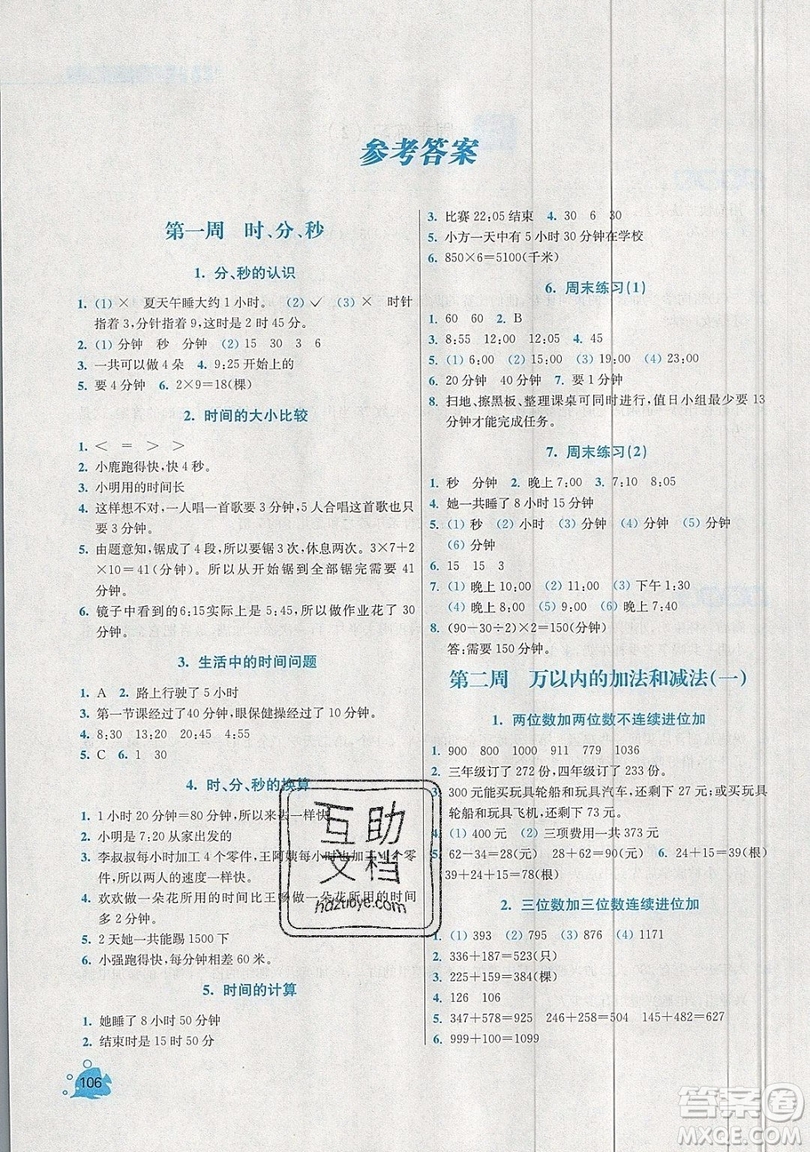 参考答案
第一周 时、分、秒
1. 分、秒的认识
1. (1) × 夏天午睡大约1小时。 (2) ✓ (3) × 时针
指着3,分针指着9,这是2时45分。
2. (1) 分钟 秒 分钟 (2) 15 30 3 6
3. 一共可以做4朵 4. 9:25开始上的
5. 要4分钟 6. 2×9=18(棵)
2. 时间的大小比较
1. < = > >
2. 小鹿跑得快,快4秒。
3. 小明用的时间长
4. 这样想不对,一人唱一首歌要3分钟,5人合唱这首歌也只
要3分钟。
5. 由题意知,锯成了4段,所以要锯3次,休息两次。3×7+2
×10=41(分钟),所以从开始锯到全部锯完共用了41
分钟。
6. 镜子中看到的6:15实际上是5:45。所以做作业花了30
分钟。
3. 生活中的时间问题
1. A 2. 路上行驶了5小时
3. 第一节课经过了40分钟,眼保健操经过了5分钟。
4. 8:30 13:20 20:45 4:55
5. C 6. 1 30
4. 时、分、秒的换算
1. 1小时20分钟=80分钟,所以来去一样快
2. 小明是7:20从家出发的
3. 李叔叔每小时加工4个零件,王阿姨每小时也加工4个零
件,所以两人的速度一样快。
4. 欢欢做一朵花所用的时间比王畅做一朵花所用的时间
多2分钟。
5. 2天她一共能踢1500下
6. 小强跑得快,每分钟相差60米。
5. 时间的计算
1. 她睡了8小时50分钟
2. 结束时是15时50分
106
3. 比赛22:05结束 4. 30 6 30
5. 小方一天中有5小时30分钟在学校
6. 850×6=5100(千米)
6. 周末练习(1)
1. 60 60 2. B
3. 8:55 12:05 12:30 4. 45
5. (1) 6:00 (2) 15:00 (3) 19:00 (4) 23:00
6. 20分钟 40分钟 7. 要1分钟
8. 扫地、擦黑板、整理课桌可同时进行,值日小组最少要13
分钟才能完成任务。
7. 周末练习(2)
1. 秒 分钟 2. 晚上 3. 7:10 8:05
4. 她一共睡了8小时15分钟
5. (1) 秒 (2) 小时 (3) 分钟 (4) 秒 (5) 分钟
(6) 分钟
6. 15 15 3
7. (1) 晚上9:10 (2) 晚上8:05 (3) 下午1:30
(4) 晚上7:40
8. (90-30÷2)×2=150(分钟)
答:需要150分钟。
第二周 万以内的加法和减法(一)
1. 两位数加两位数不连续进位加
1. 900 800 1000 889 711 1036
2. 三年级订了272份,四年级订了233份。
3. 300元能买玩具轮船和玩具汽车,还剩下27元;或买玩具
轮船和玩具飞机,还剩下73元。
4. (1) 400元 (2) 三项费用一共373元
5. 62-34=28(只) 28+62=90(只) 6. 24+15=39(棵)
39+24+15=78(棵)
2. 三位数加三位数连续进位加
1. (1) 393 (2) 795 (3) 876 (4) 1171
2. 336+187=523(只)
3. 225+159=384(棵)
4. 126 106
5. 347+578=925 316+498=814 258+369=627
6. 999+100=1099
互助
文档
hdzuoye.com
答案圈
MXQE.COM